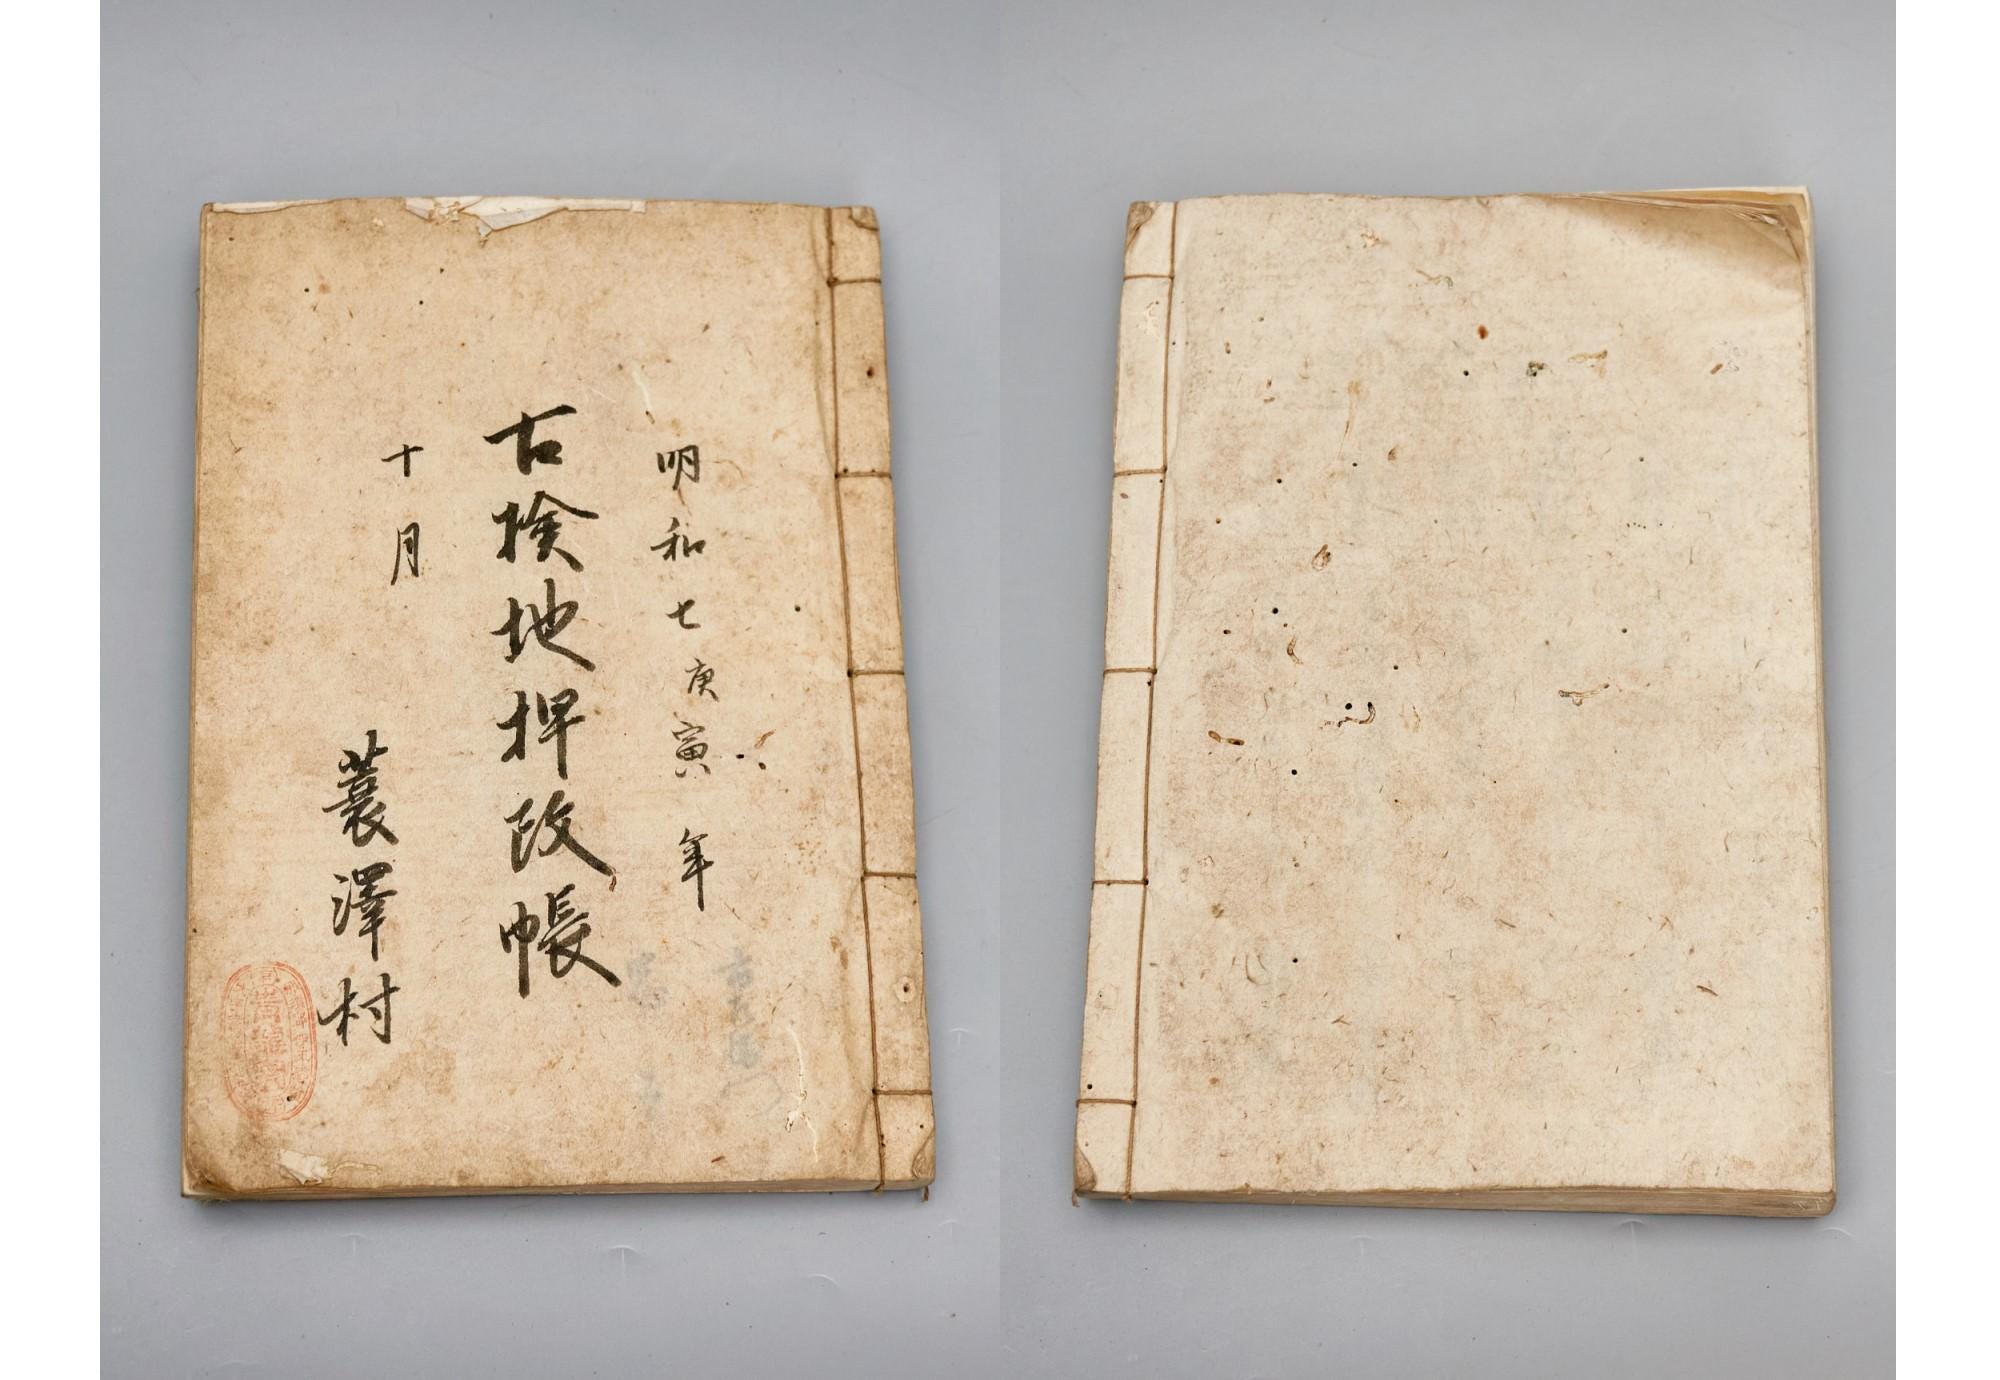 明和七庚寅年
古検地押改帳
十月
蓑澤村